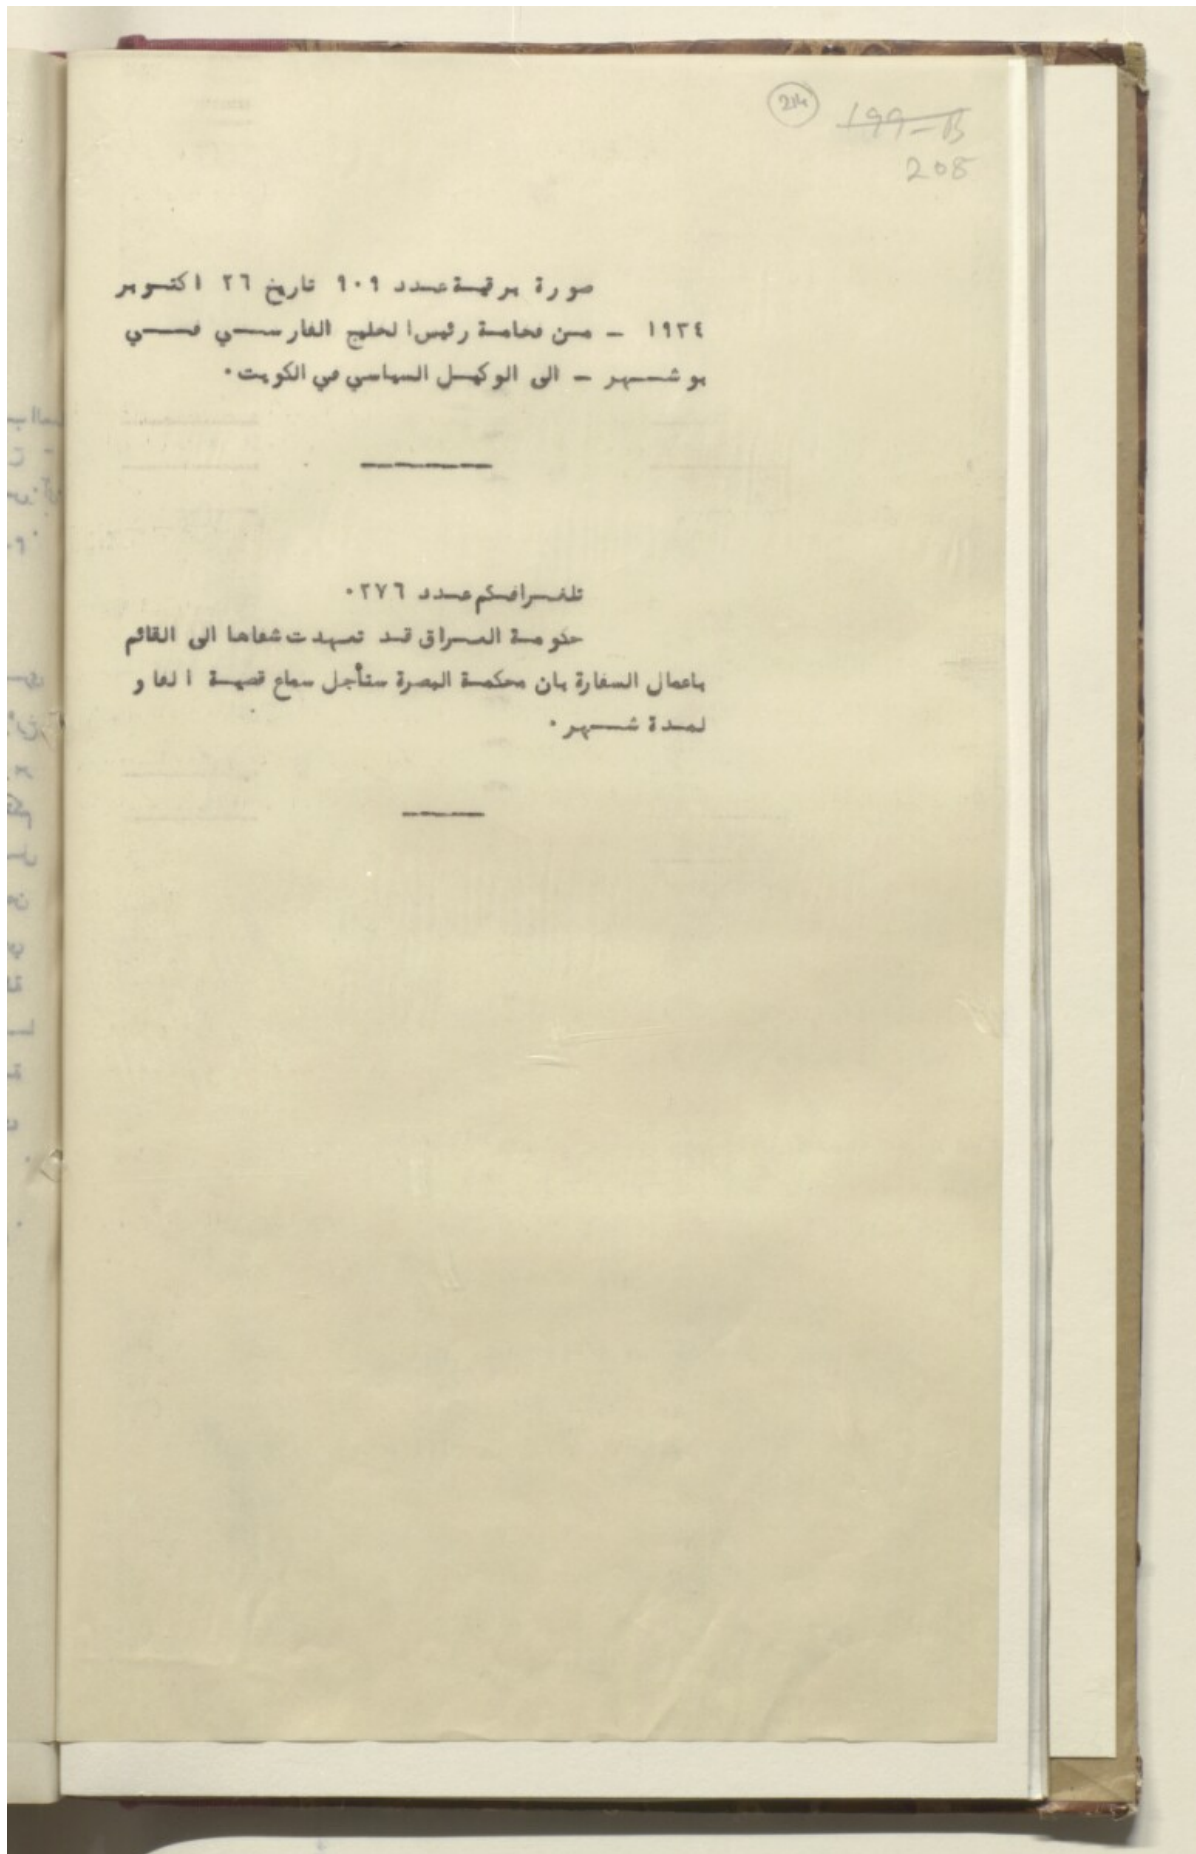 214
199-B
208
صورة برقية عدد ٩٠٩ تاريخ ٢٦ اكتوبر
١٩٣٤ - من فخامة رئيس الخليج الفارسي في
بوشهر - الى الوكيل السياسي في الكويت٠
تلغرافكم عدد ٢٧٦٠
حكومة العراق قد تعهدت شفاها الى القائم
باعمال السفارة بان محكمة البصرة ستأجل سماع قضية الفاو
لمدة شهر٠